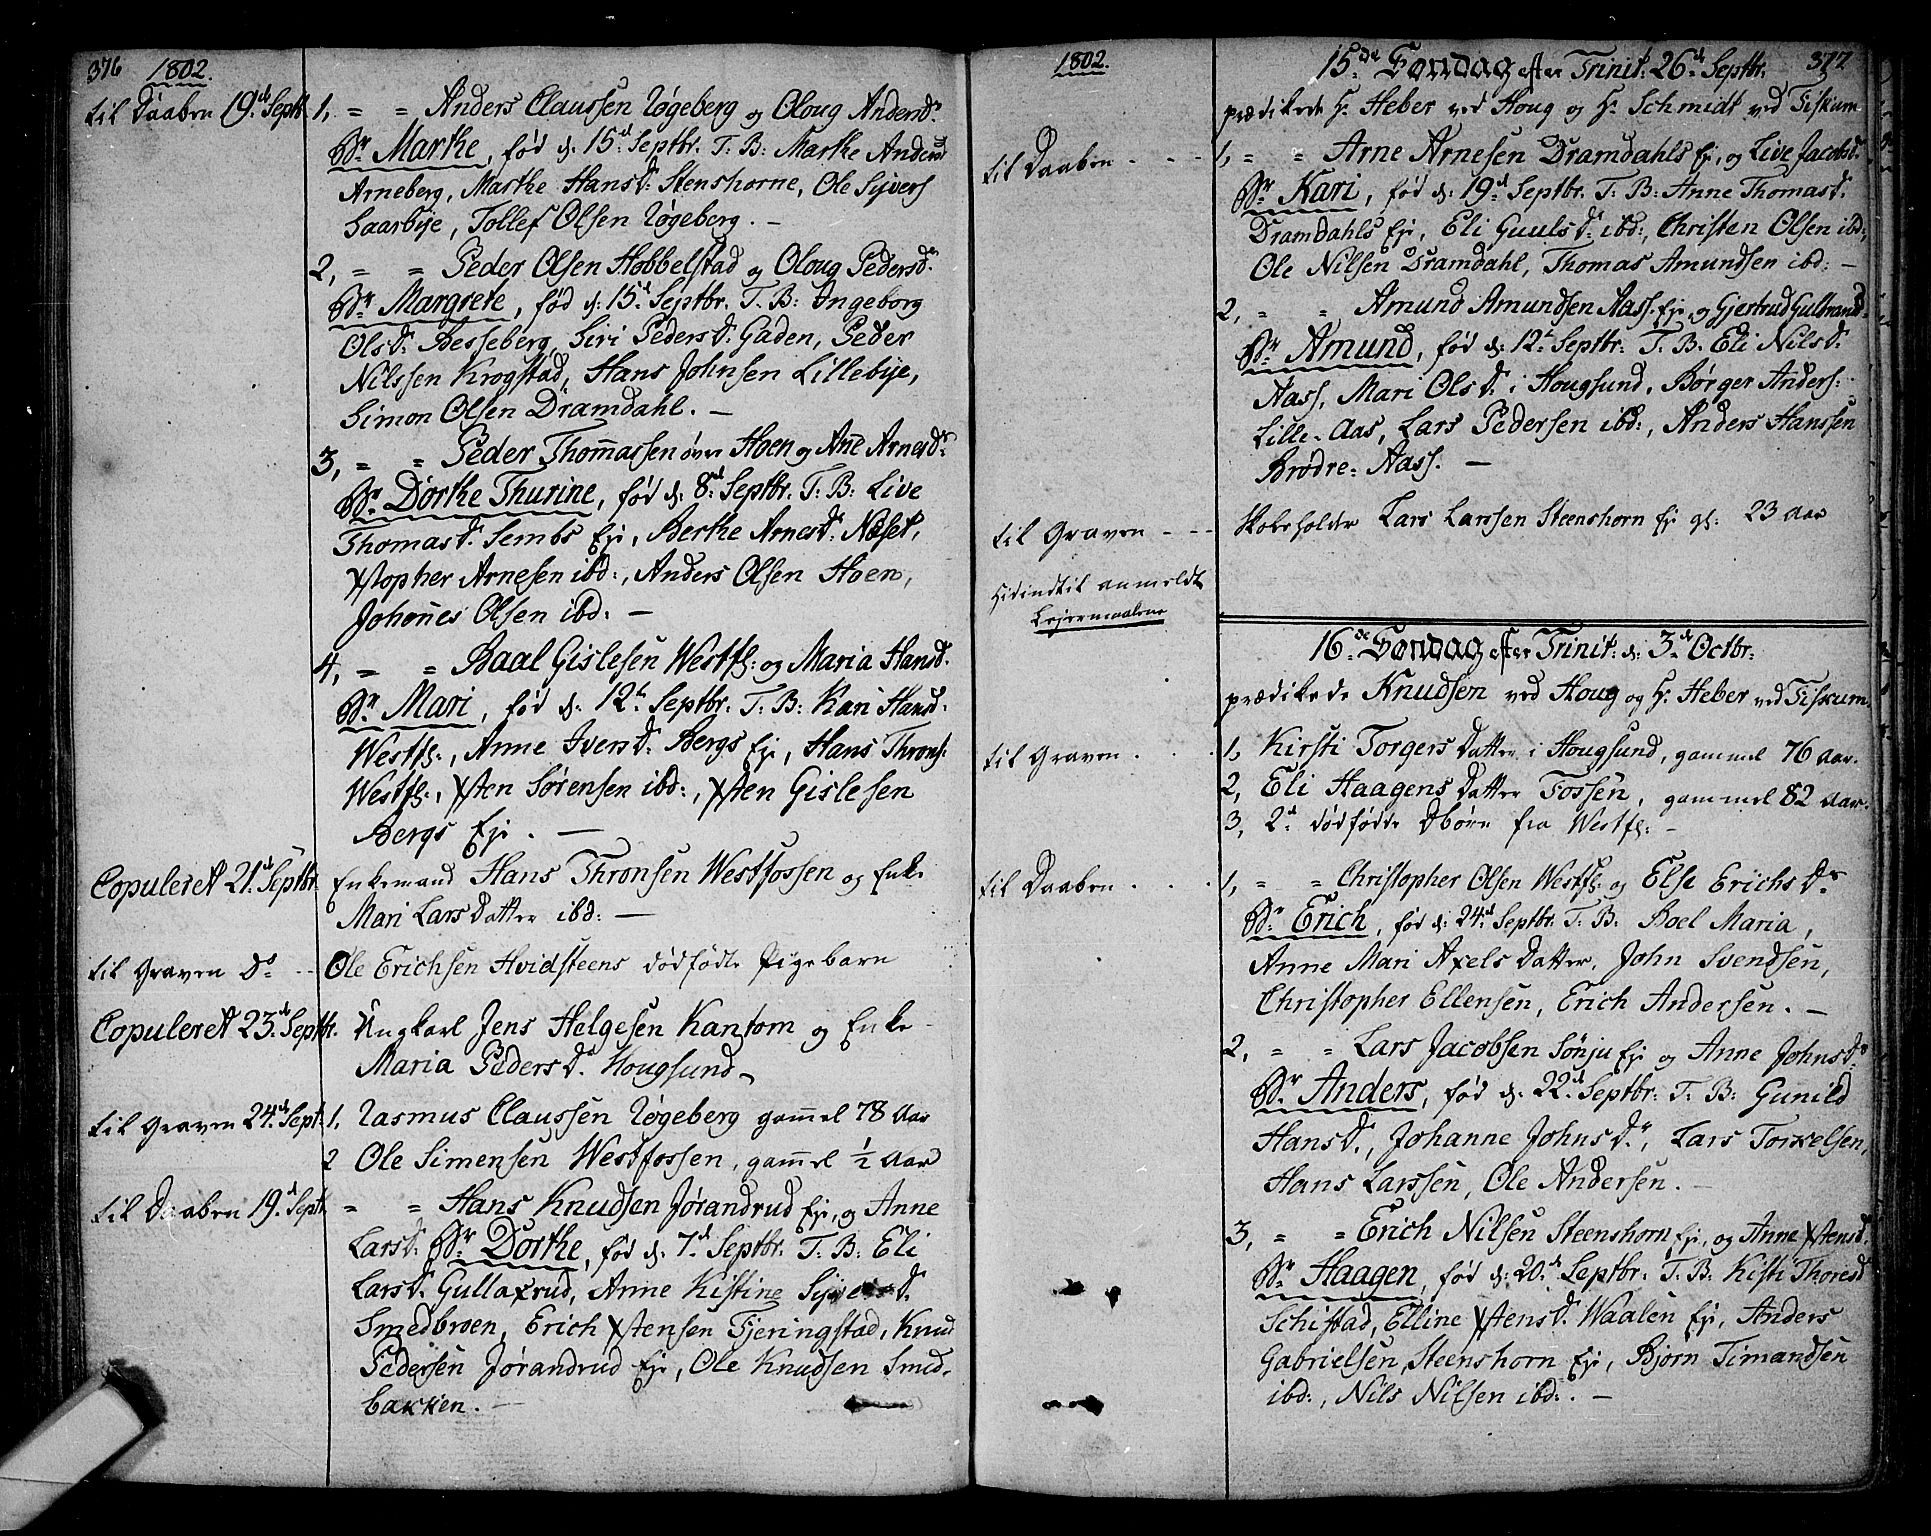 376 1802.
til Daaben 19.d Septr. 1, " " Anders Claussen Røgeberg og Oloug Andersd.r
Br. Marthe, fød d: 15.d Septbr. T. B: Marthe Andersd
Arneberg, Marthe Hansd. Stenshorne, Ole Syvers
Saarbye, Tollef Olsen Røgeberg. —
2, " " Peder Olsen Hobbelstad og Oloug Pedersd.r
Br. Margrete, fød d: 15.d Septbr. T. B: Ingeborg
Olsd. Besseberg, Siri Pedersd. Gaden, Peder
Nilssen Krogstad, Hans Johnsen Lillebye,
Simon Olsen Dramdahl. —
3, " " Peder Thomassen øvre Hoen og Ane Arnesd.r
Br. Dorthe Thurine, fød d: 8.d Septbr. T. B: Live
Thomasd. Sembs Eje, Berthe Arnesd. Næset,
Xstopher Arnesen ibd:, Anders Olsen Hoen,
Johones Olsen ibd: —
4, " " Baal Gislesen Westfs: og Maria Hansd.
Br. Mari, fød d: 12.t Septbr. T. B: Kari Hansd.
Westfs:, Anne Iversd. Bergs Eje, Hans Throns:
Westfs:, Xsten Sørensen ibd:, Xsten Gislesen
Bergs Eje. —
Copuleret 21.d Septbr. Enkemand Hans Thronsen Westfossen og Enke
Mari Lars Datter ibd: —
til Graven Do -- Ole Erichsen Hvidsteens dødfødte Pigebarn
Copuleret 23.d Septbr. Ungkarl Jens Helgesen Kantom og Enke
Maria Pedersd. Hougsund
til Graven 24.d Sept: 1, Rasmus Claussen Røgeberg gammel 78 Aar
2 Ole Simensen Westfossen, gammel ½ Aar
til Daaben 19.d Septr. " " Hans Knudsen Jørandrud Eje, og Anne
Larsd. Br. Dorthe, fød d: 7.d Septbr. T. B: Eli
Larsd. Gullaxrud, Anne Kistine Syversd.
Smedbroen, Erich Xstensen Tjeringstad, Knud
Pedersen Jørandrud Eje, Ole Knudsen Smed-
bakken. —
1802. 15.de Søndag efter Trinit: 26.d Septbr. 377
prædikede Hr. Heber ved Houg og Hr. Schmidt ved Fiskum
til Daaben - - - 1, " " Arne Arnesen Dramdahls Eje, og Live Jacobsd.
Br. Kari, fød d: 19.d Septbr. T. B: Anne Thomasd.
Dramdahls Eje, Eli Guulsd. ibd:, Christen Olsen ibd:,
Ole Nilsen Dramdahl, Thomas Amundsen ibd: —
2, " " Amund Amundsen Aass. Eje, og Gjertrud Gulbrandsd
Br. Amund, fød d: 12.t Septbr. T. B. Eli Nilsd.
Aass, Mari Olsd. i Hougsund, Børger Anders:
Lille-Aas, Lars Pedersen ibd:, Anders Hanssen
Brødre-Aass. —
til Graven - - - Skoleholder Lars Larssen Steenshorn Eje gl: 23 Aar
Hidindtil anmeldt
Lejermaalene
16.de Søndag efter Trinit: d: 3.d Octbr:
prædikede Knudsen ved Houg og Hr. Heber ved Fiskum
til Graven . . . 1, Kirsti Torgers Datter i Hougsund, gammel 76 Aar.
2, Eli Haagens Datter Fossen, gammel 82 Aar.
3, 2.d dødfødde Dbørn fra Westfs: -
til Daaben . . . 1, " " Christopher Olsen Westfs: og Else Erichsd.r
Br. Erich, fød d: 24.d Septbr. T. B. Boel Maria,
Anne Mari Axels Datter, John Svendsen,
Christopher Ellensen, Erich Andersen. —
2, " " Lars Jacobsen Sønju Eje og Anne Johnsd.r
Br. Anders, fød d: 22.d Septbr: T. B: Gunild
Hansd., Johanne Johnsd., Lars Torkelsen,
Hans Larssen, Ole Andersen. —
3, " " Erich Nilsen Steenshorn Eje, og Anne Xstensd.
Br. Haagen, fød d: 20.d Septbr. T. B. Kisti Thoresd
Schistad, Elline Xstensd. Waalen Eje, Anders
Gabrielsen, Steenshorn Eje, Bjørn Timandsen
ibd:, Nils Nilsen ibd:. —